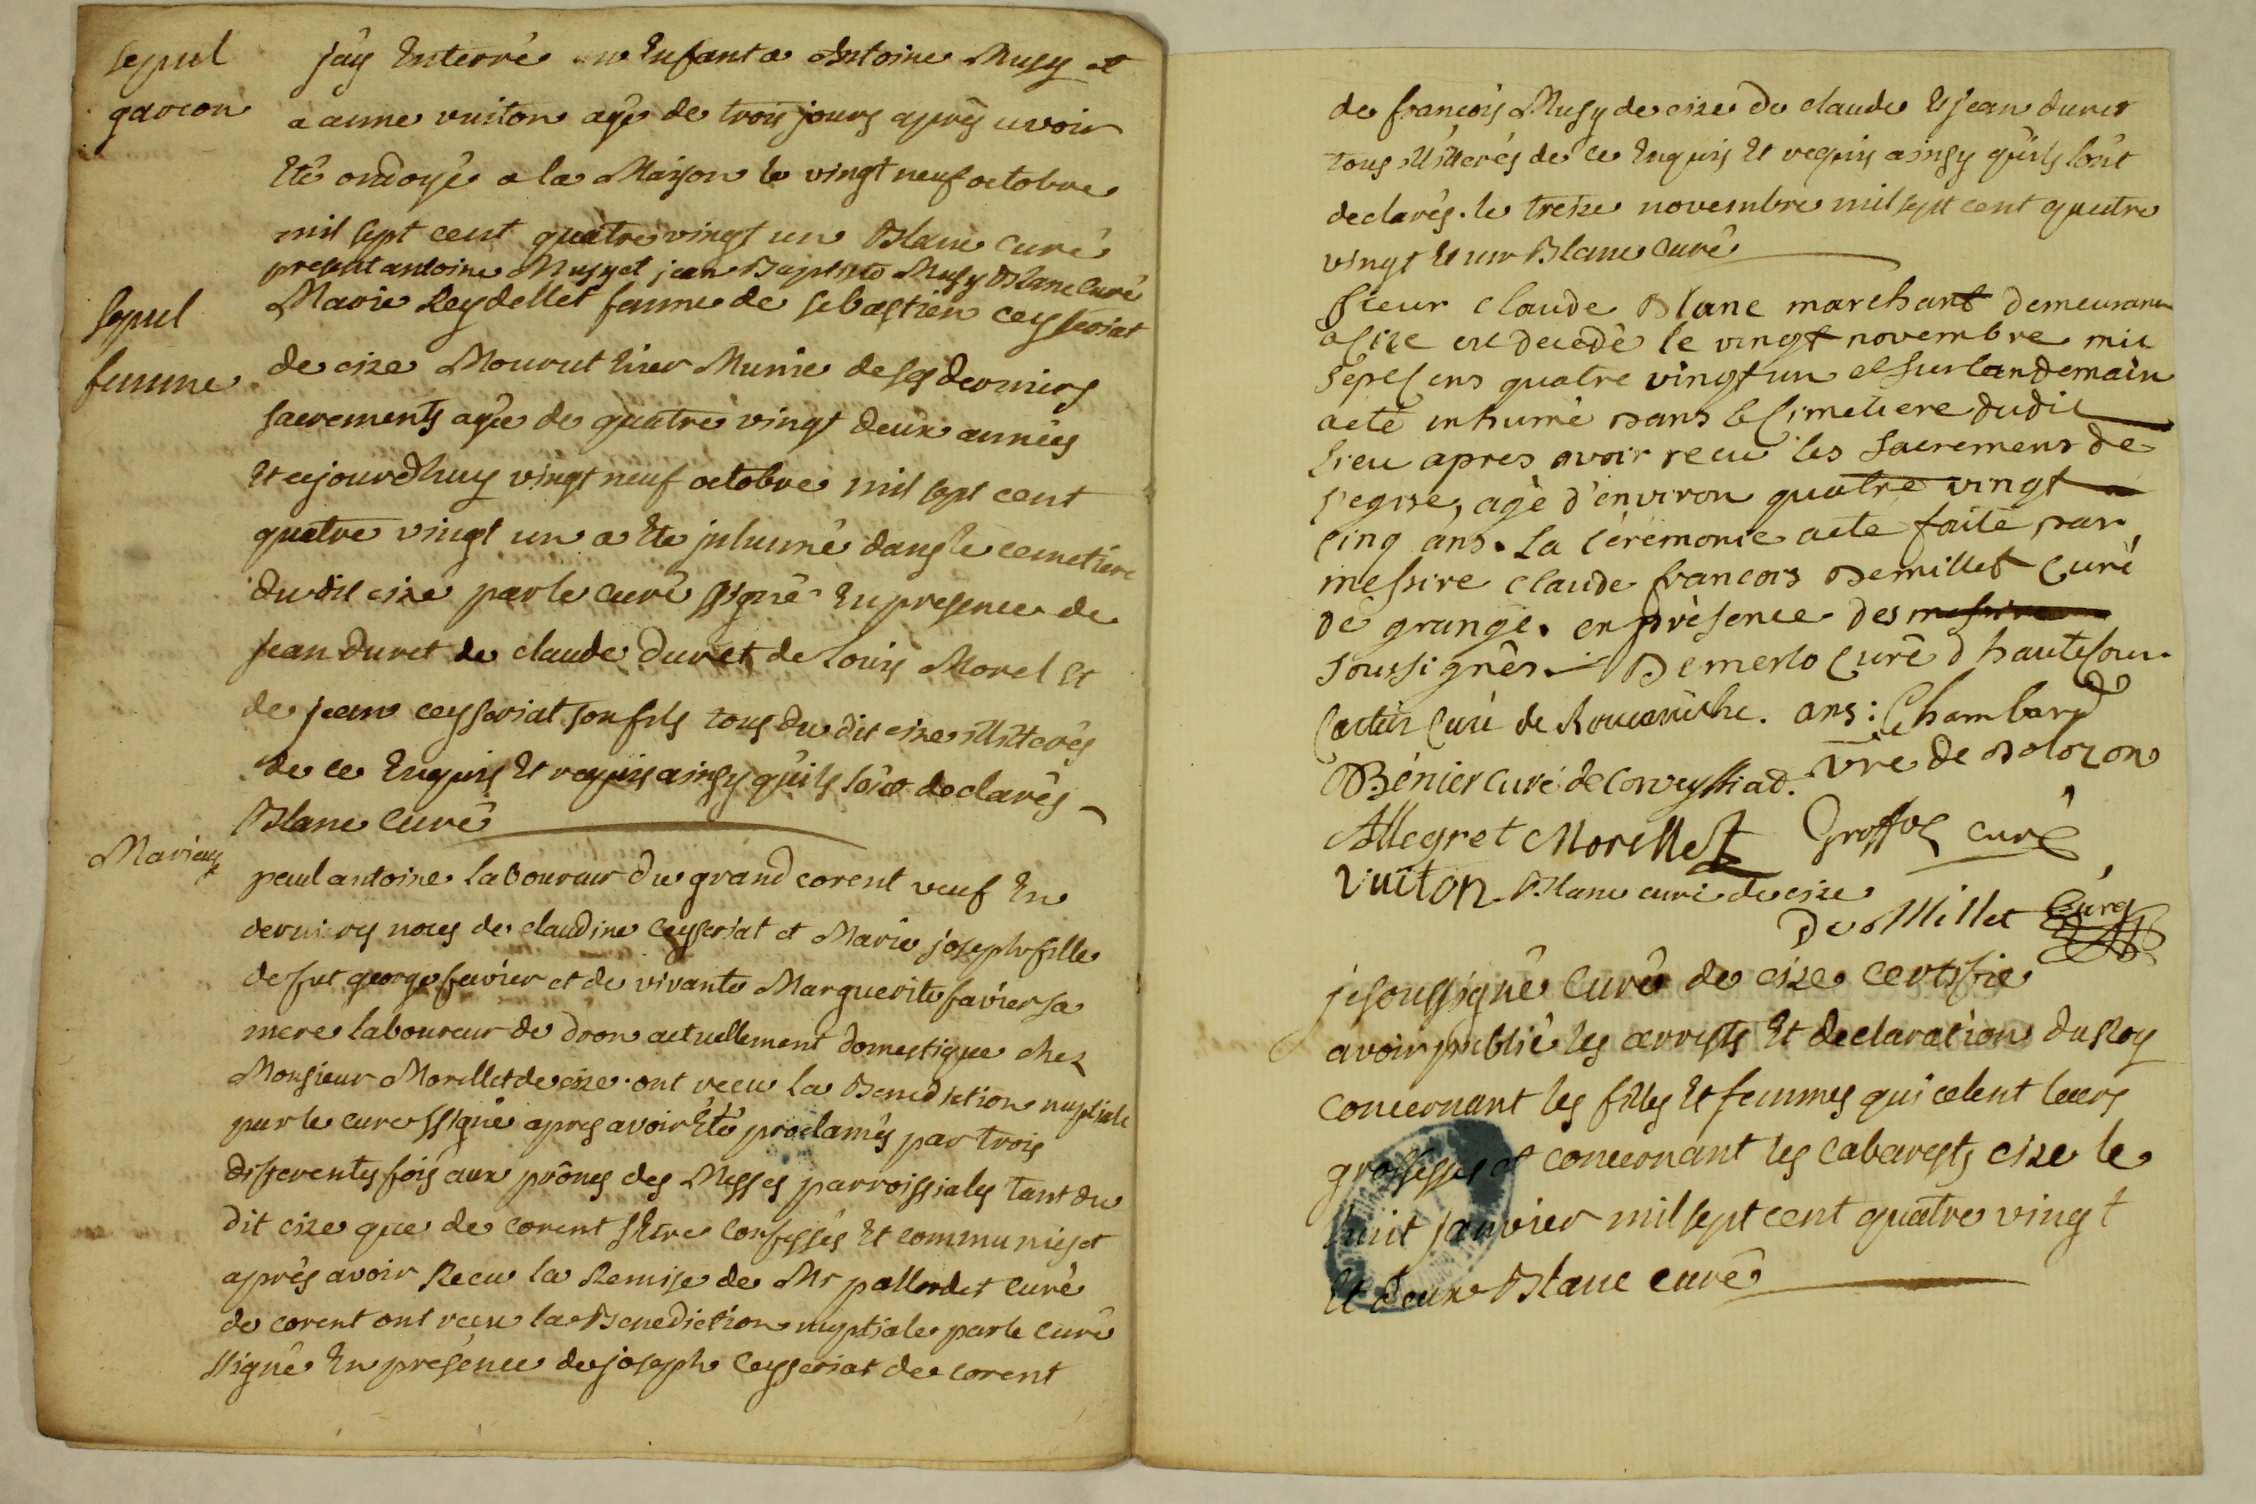 sepul
garcon
j'ay Enterré un Enfant a Antoine Musy et
a anne vuiton agé de trois jours après avoir
Eté ondoyé a la Maison le vingt neuf octobre
mil sept cent quatre vingt un Blanc curé
present antoine Musy et jean Baptiste Musy Blanc curé
sepul
femme
Marie Reydellet femme de sebastien ceysseriat
de cize Mourut hier Munie de ses derniers
sacrements agée de quatre vingt deux années
Et cejourdhuy vingt neuf octobre mil sept cent
quatre vingt un a Ete inhumé dans le cemetiere
du dit cize par le curé ssigné En presence de
jean duret de claude duret de louis Morel Et
de jean ceysseriat son fils tous du dit cize illiterés
de ce Enquis Et requis ainsy qu'ils l'ont declarés
Blanc curé
Mariage
paul antoine laboureur du grand corent veuf En
dernieres noces de claudine ceyseriat et Marie joseph fille
de fut george favier et de vivante Marguerite favier sa
mere laboureur de dron actuellement domestique chez
Monsieur Morellet de cize ont recu la Benediction nuptiale
par le cure ssigné apres avoir Eté proclamés par trois
differentes fois aux prônes des Messes parroissiales tant du
dit cize que de corent s'Etre confessés Et communies et
après avoir Recu la Remise de Mr pallordet curé
de corent ont recu la Benediction nuptiale par le curé
ssigné En présence de joseph Ceysseriat de corent
de francois Musy de cize de claude Et jean duret
tous illiterés de ce Enquis Et requis ainsy qu'ils l'ont
declarés. le treize novembre mil sept cent quatre
vingt Et un Blanc curé
sieur claude Blanc marchant demeurant
a size est decedé le vingt novembre mil
sept cens quatre vingt un et surlandemain
a eté inhumé dans le simetiere dudit
lieu apres avoir recu les sacremens de
l'egise, agé d'environ quatre vingt
cinq ans. La cérémonie a eté faite par
messire claude francois Demillet curé
de grange. en présence des messire
soussignés. Demerlo curé d'hautecour
curé de . ans: Chambard
Bénier curé de Corveyssiad. vre de Bolozon
Allegret Morellet Groffoz curé
Vuiton Blanc curé de cize
De Millet Curé
je soussigné curé de cize certifie
avoir publié les arrests Et declaration du Roy
concernant les filles Et femmes qui celent leurs
grossesses et concernant les cabarests cize le
huit janvier mil sept cent quatre vingt
Et deux Blanc curé